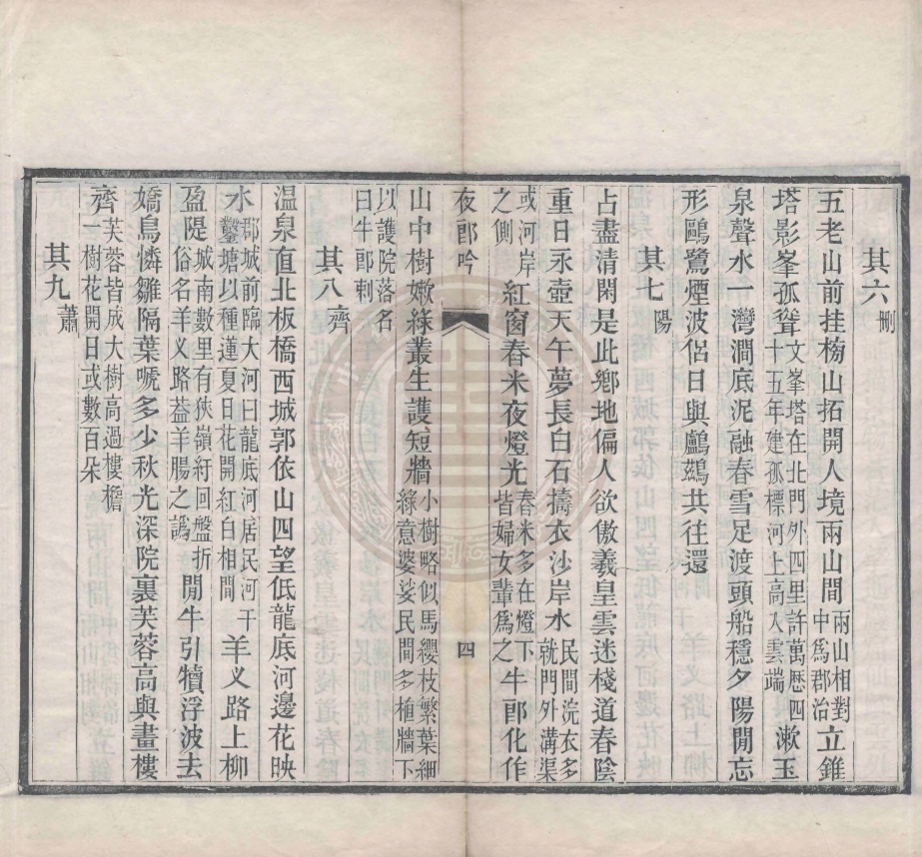 其六 刪
五老山前挂榜山拓開人境兩山間兩山相對中爲郡治立錐
塔影峯孤聳文峯塔在北門外四里許萬歷四十五年建孤標河上高入雲端漱玉
泉聲水一灣澗底泥融春雪足渡頭船穩夕陽閒忘
形鷗鷺煙波侶日與鸕鷀共往還
其七 陽
占盡清閑是此鄉地偏人欲傲羲皇雲迷棧道春陰
重日永壺天午夢長白石擣衣沙岸水民間浣衣多就門外溝渠
或河岸之側紅窗舂米夜燈光舂米多在燈下皆婦女輩爲之牛郎化作
夜郎吟
四
山中樹嫰綠叢生護短牆小樹略似馬纓枝繁葉細綠意婆娑民間多植牆下
以護院落名曰牛郎刺
其八 齊
温泉直北板橋西城郭依山四望低龍底河邊花映
水郡城前臨大河曰龍底河居民河干鑿塘以種蓮夏日花開紅白相間羊义路上柳
盈隄城南數里有狹嶺紆回盤折俗名羊义路葢羊腸之譌閒牛引犢浮波去
嬌鳥憐雛隔葉嗁多少秋光深院裏芙蓉高與畫樓
齊芙蓉皆成大樹高過樓檐一樹花開日或數百朵
其九 蕭